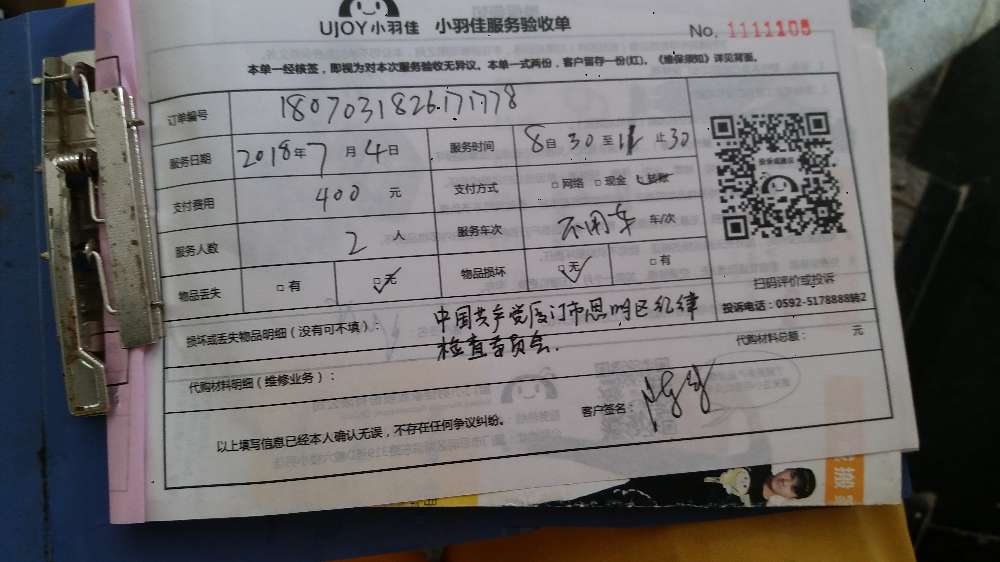 UJOY小羽佳 小羽佳服务验收单 No. 1111105
本单一经核签，即视为对本次服务验收无异议。本单一式两份，客户留存一份(红)，《维保须知》详见背面。
订单编号 180703182617177８
服务日期 2018年7月4日 服务时间 8自30至11止30
支付费用 400 元 支付方式 □网络 □现金 转账
服务人数 2 人 服务车次 不用车 车/次
物品丢失 □有 □无 物品损坏 □无 □有
投诉或建议
扫码评价或投诉
投诉电话：0592-5178888转2
损坏或丢失物品明细（没有可不填）： 中国共产党厦门市思明区纪律
检查委员会.
代购材料明细（维修业务）： 代购材料总额： 元
以上填写信息已经本人确认无误，不存在任何争议纠纷。 客户签名：
搬